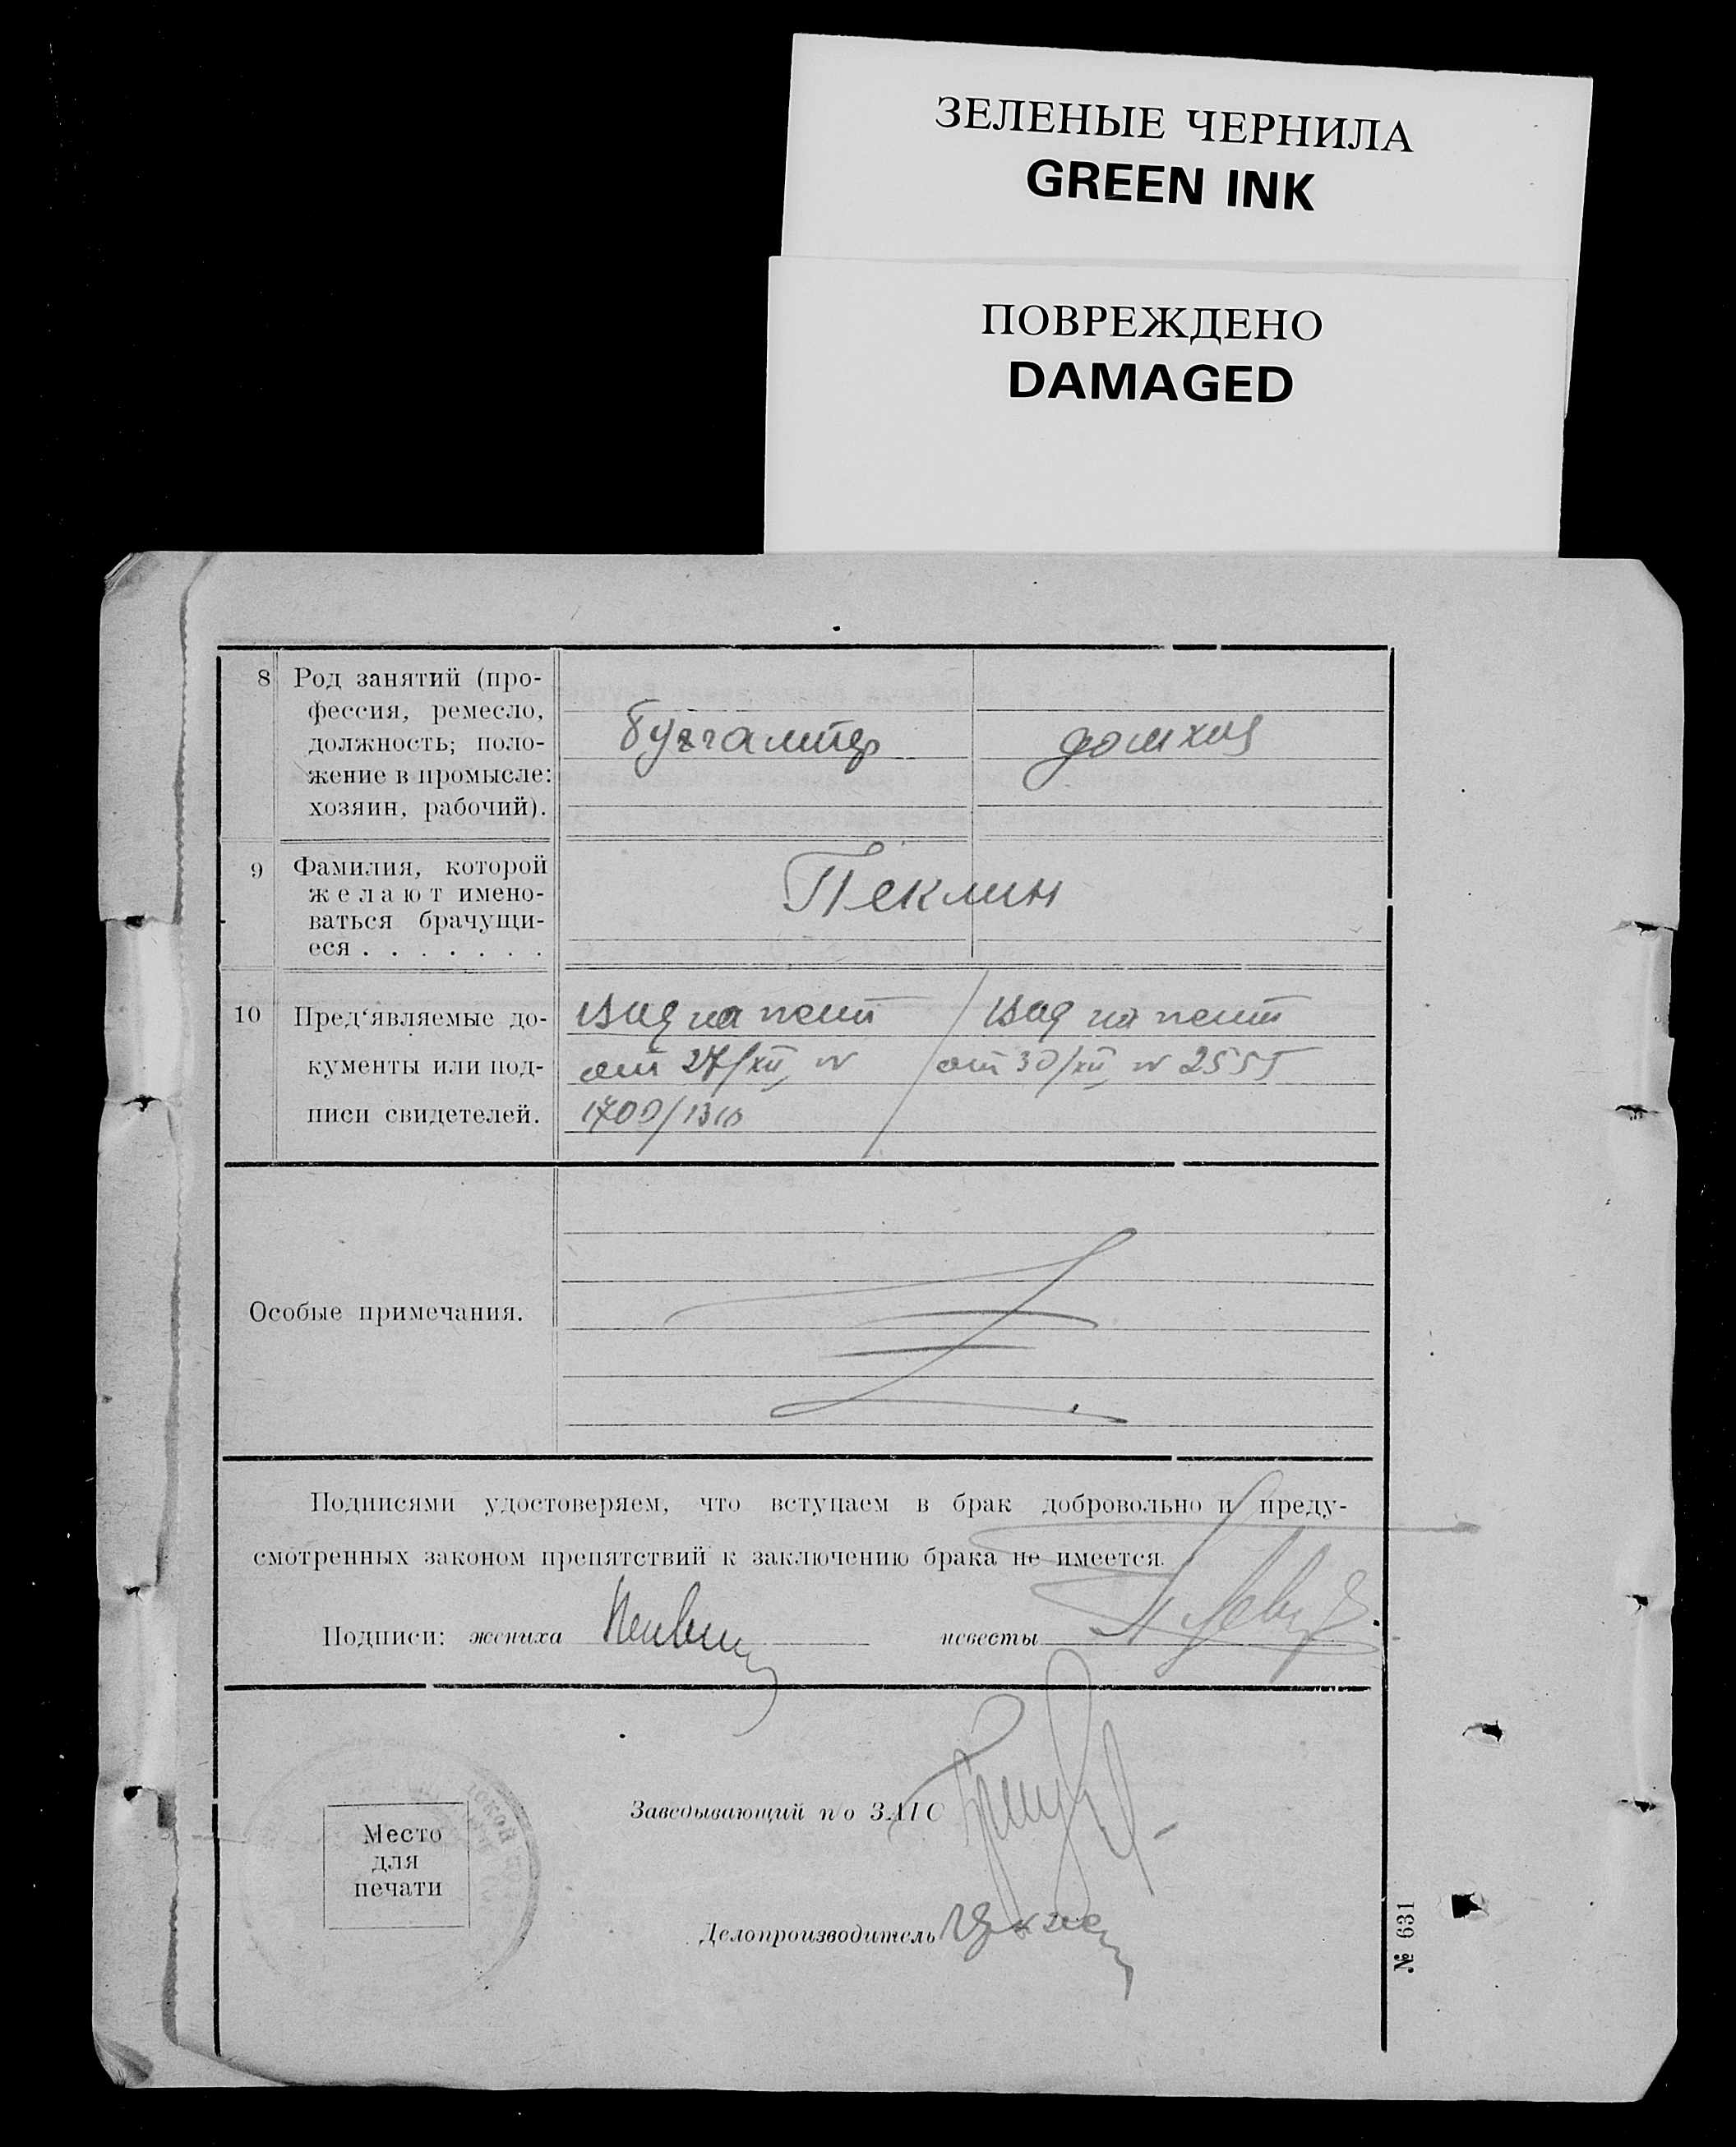 ЗЕЛЕНЫЕ ЧЕРНИЛА
GREEN INK
ПОВРЕЖДЕНО
DAMAGED
8 Род занятий (про-
фессия, ремесло,
должность; поло-
жение в промысле:
хозяин, рабочий).
бухгалтер домхоз
9 Фамилия, которой
желают имено-
ваться брачущи-
еся . . . . . . .
Пеклин
10 Пред‘являемые до-
кументы или под-
писи свидетелей.
Вид на жит / Вид на жит
от 27/XII, № / от 30/XII, № 2555
1700/1310
Особые примечания.
Подписями удостоверяем, что вступаем в брак добровольно и преду-
смотренных законом препятствий к заключению брака не имеется.
Подписи: жениха невесты
Заведывающий п/о ЗАГС
Место
для
печати
Делопроизводитель
№ 631